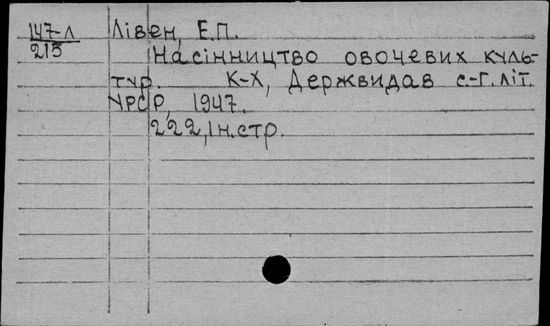 147-Л
215
Лівен, Е.П.
Насінництво овочевих куль-
тур. К-Х, Держвидав с.-г. літ.
УРСР, 1947.
222, Ін. стр.